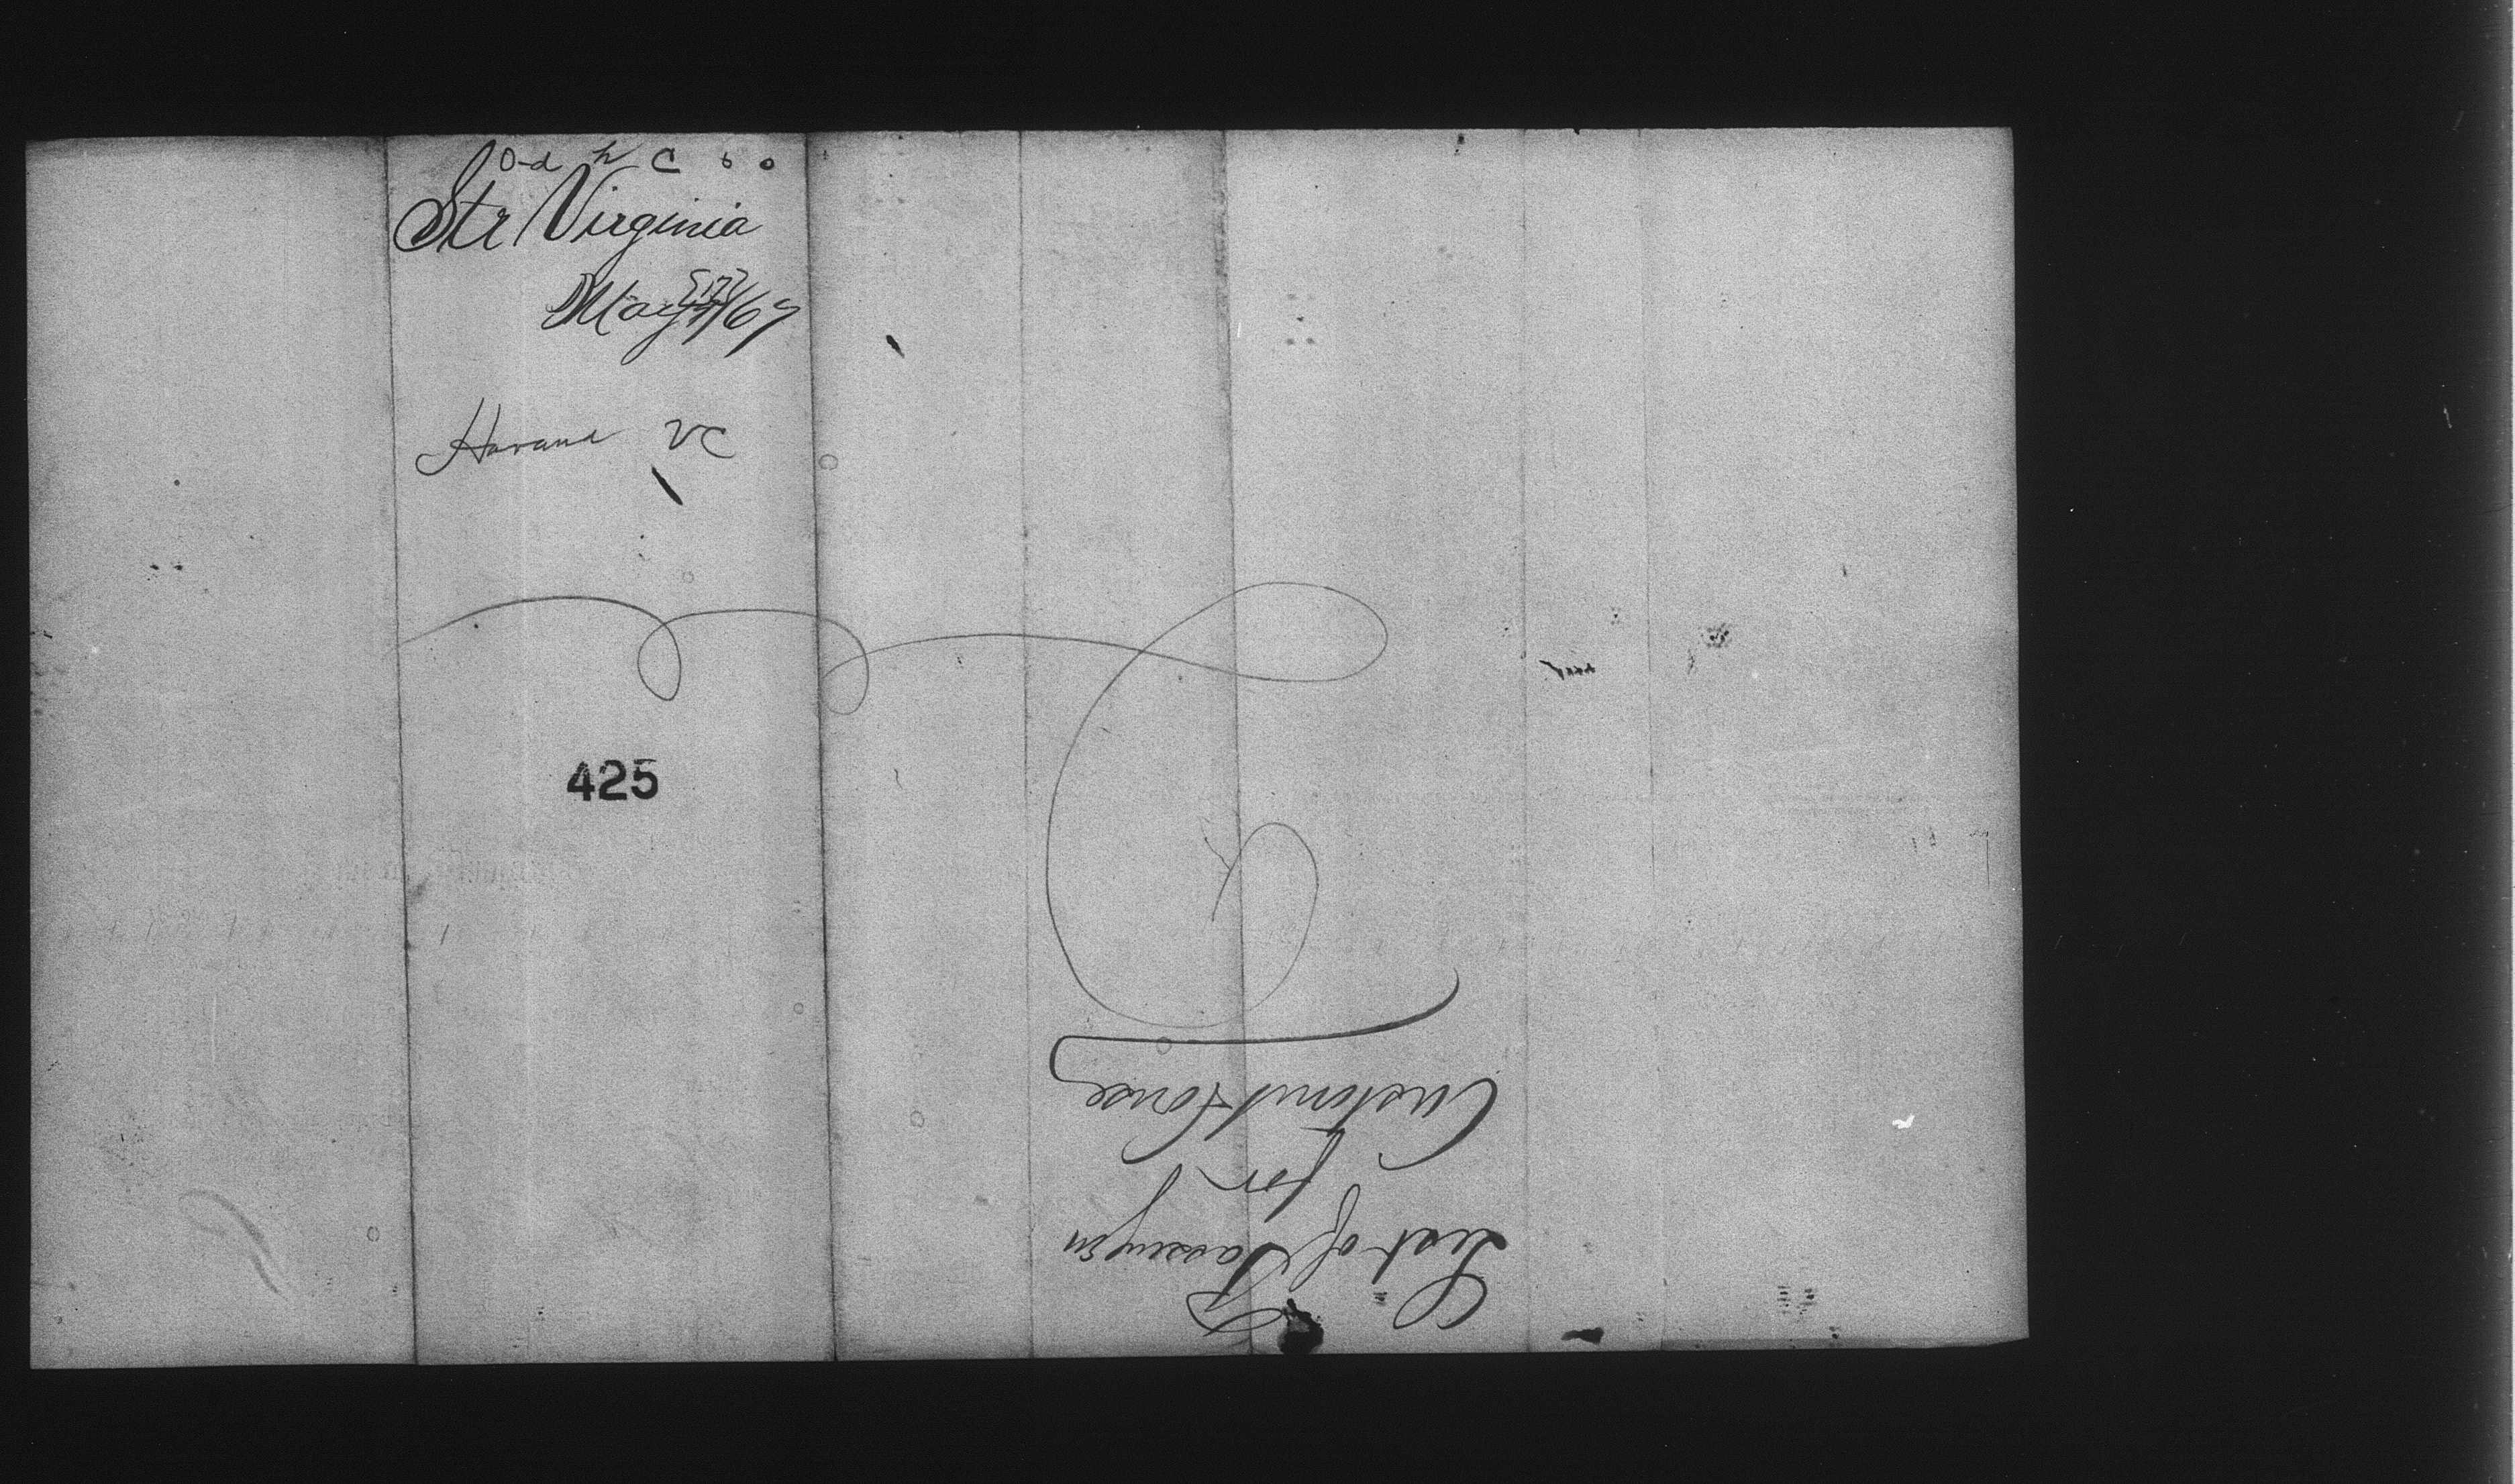 Str Virginia
May 17/67
Havana VC
425
List of Passengers
for
Custom House